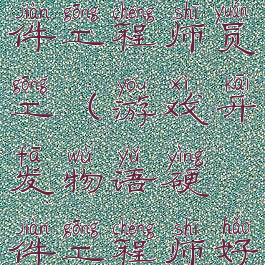 jiàn gōng chéng shī yuán
件工程师员
gōng yóu xì kāi
工（游戏开
fā wù yǔ yìng
发物语硬
jiàn gōng chéng shī hǎo
件工程师好